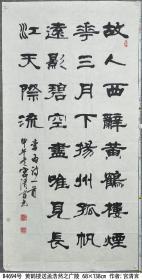 故人西辭黃鶴樓煙
花三月下揚州孤帆
遠影碧空盡唯見長
江天際流
李白詩一首
甲午冬宮清宜書
B4694号 黄鹤楼送孟浩然之广陵 68×138cm 作者:宫清宜